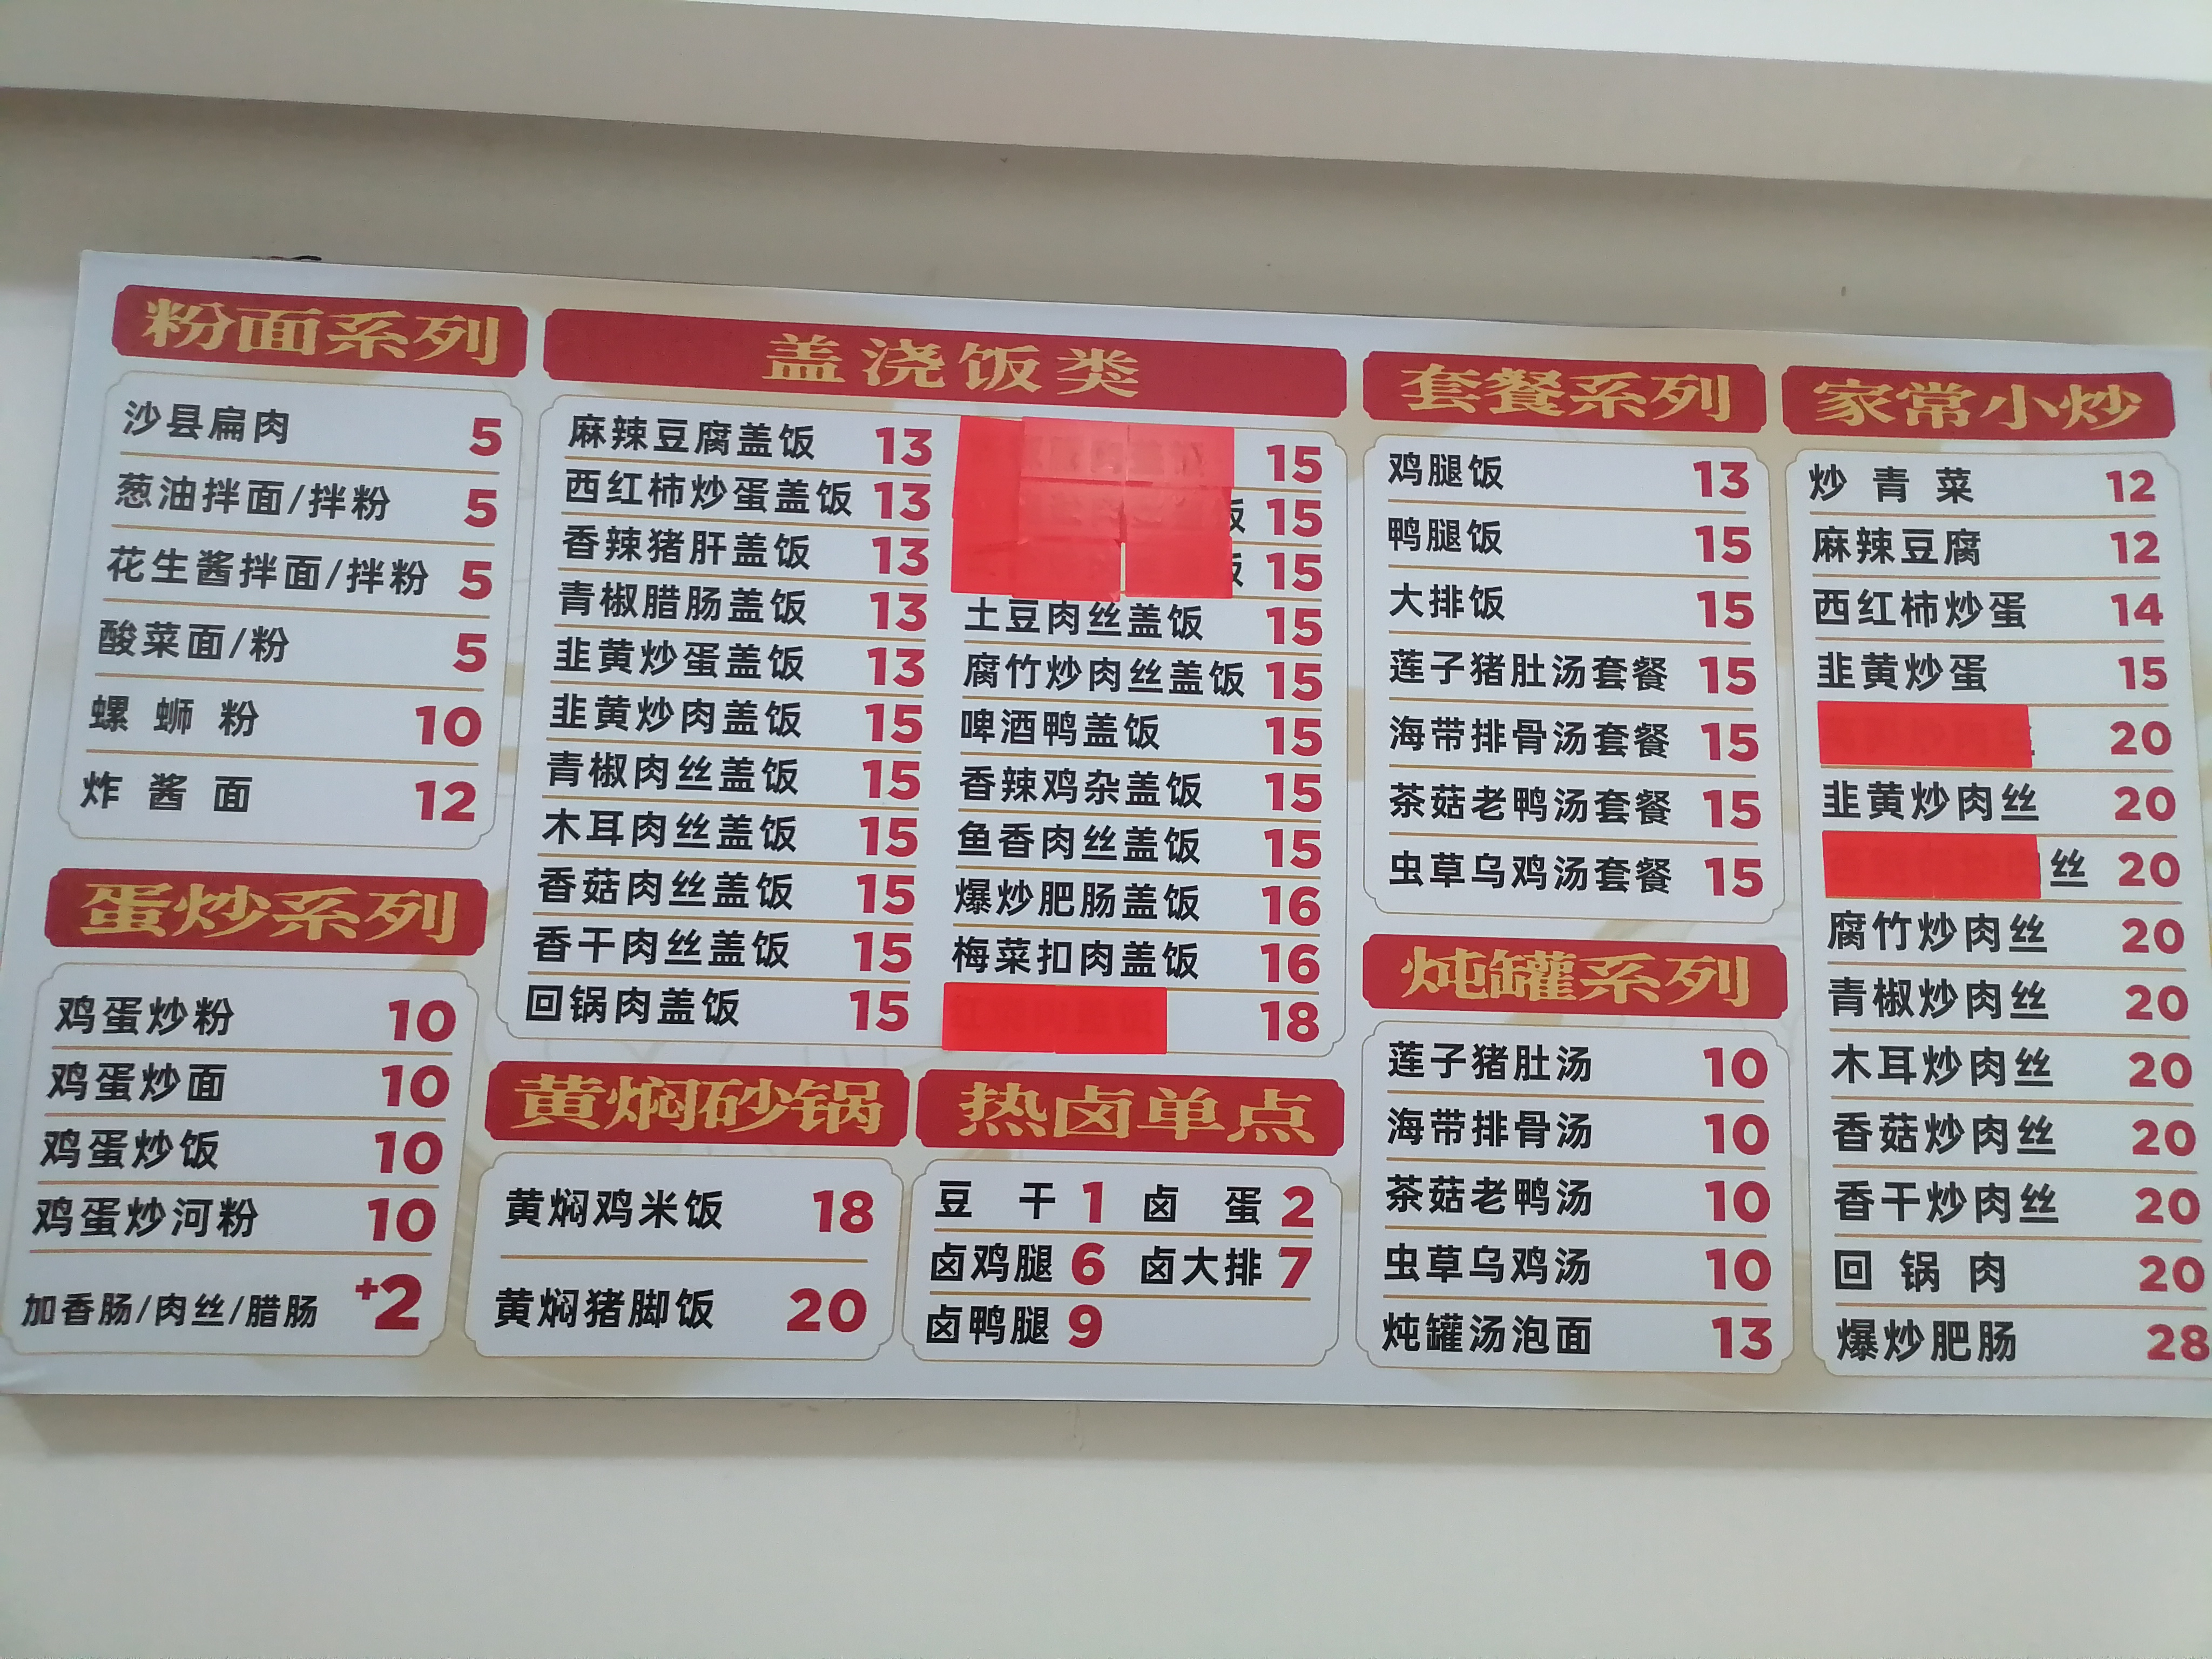 粉面系列
沙县扁肉 5
葱油拌面/拌粉 5
花生酱拌面/拌粉 5
酸菜面/粉 5
螺蛳粉 10
炸酱面 12
蛋炒系列
鸡蛋炒粉 10
鸡蛋炒面 10
鸡蛋炒饭 10
鸡蛋炒河粉 10
加香肠/肉丝/腊肠 +2
盖浇饭类
麻辣豆腐盖饭 13
西红柿炒蛋盖饭 13
香辣猪肝盖饭 13
青椒腊肠盖饭 13
韭黄炒蛋盖饭 13
韭黄炒肉盖饭 15
青椒肉丝盖饭 15
木耳肉丝盖饭 15
香菇肉丝盖饭 15
香干肉丝盖饭 15
回锅肉盖饭 15
15
饭 15
饭 15
土豆肉丝盖饭 15
腐竹炒肉丝盖饭 15
啤酒鸭盖饭 15
香辣鸡杂盖饭 15
鱼香肉丝盖饭 15
爆炒肥肠盖饭 16
梅菜扣肉盖饭 16
18
黄焖砂锅
黄焖鸡米饭 18
黄焖猪脚饭 20
热卤单点
豆干 1 卤蛋 2
卤鸡腿 6 卤大排 7
卤鸭腿 9
套餐系列
鸡腿饭 13
鸭腿饭 15
大排饭 15
莲子猪肚汤套餐 15
海带排骨汤套餐 15
茶菇老鸭汤套餐 15
虫草乌鸡汤套餐 15
炖罐系列
莲子猪肚汤 10
海带排骨汤 10
茶菇老鸭汤 10
虫草乌鸡汤 10
炖罐汤泡面 13
家常小炒
炒青菜 12
麻辣豆腐 12
西红柿炒蛋 14
韭黄炒蛋 15
20
韭黄炒肉丝 20
丝 20
腐竹炒肉丝 20
青椒炒肉丝 20
木耳炒肉丝 20
香菇炒肉丝 20
香干炒肉丝 20
回锅肉 20
爆炒肥肠 28